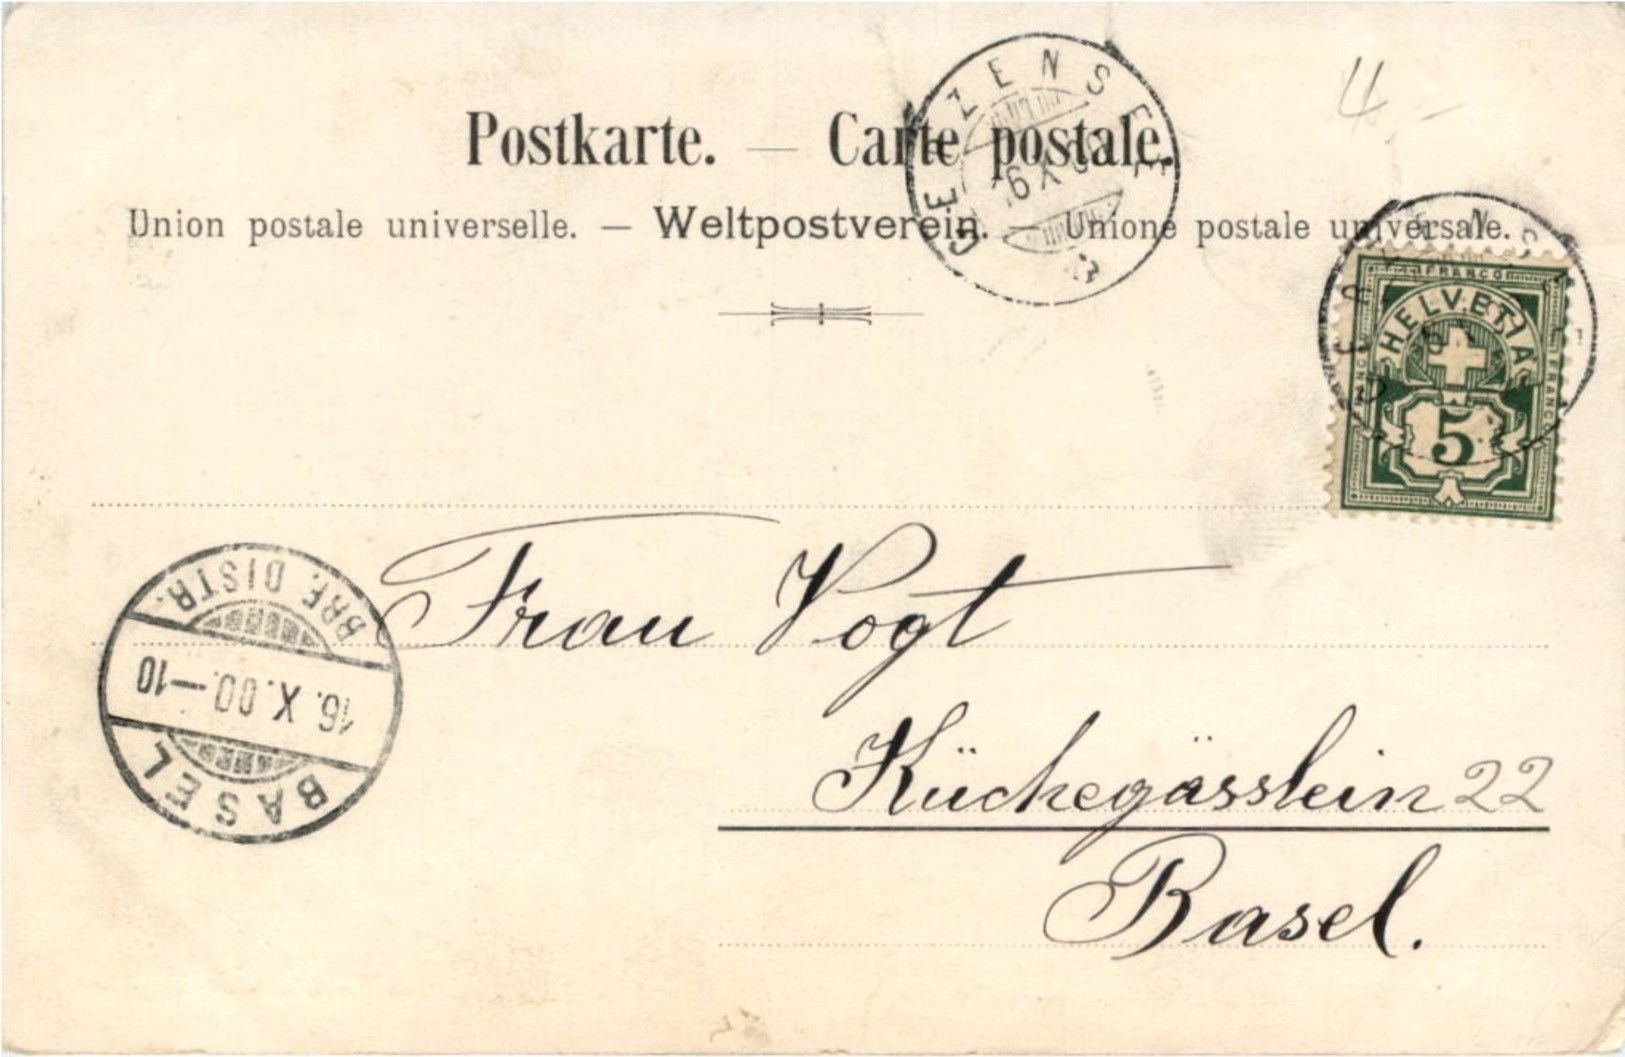 4.-
Postkarte. — Carte postale.
Union postale universelle. — Weltpostverein. — Unione postale universale.
GERZENSEE
FRANCO
HELVETIA
FRANCO
5
BRF. DISTR.
16. X. 00.-10
BASEL
Frau Vogt
Küchegässlein 22
Basel.